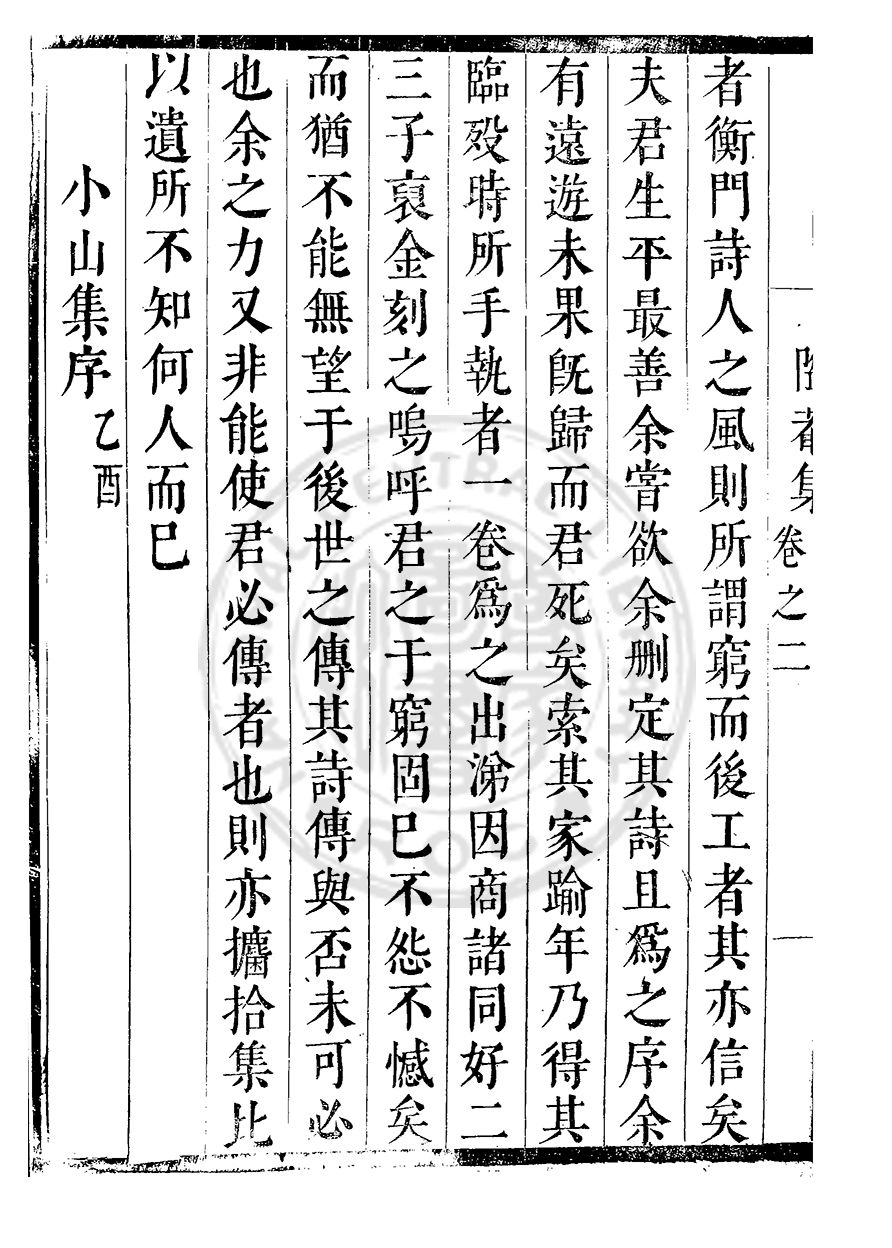 集卷之二
者衡門詩人之風則所謂窮而後工者其亦信矣
夫君生平最善余甞欲余删定其詩且爲之序余
有遠遊未果旣歸而君死矣索其家踰年乃得其
臨殁時所手執者一卷爲之出涕因商諸同好二
三子裒金刻之嗚呼君之于窮固巳不怨不憾矣
而猶不能無望于後世之傳其詩傳與否未可必
也余之力又非能使君必傳者也則亦攟拾集比
以遺所不知何人而巳
小山集序乙酉